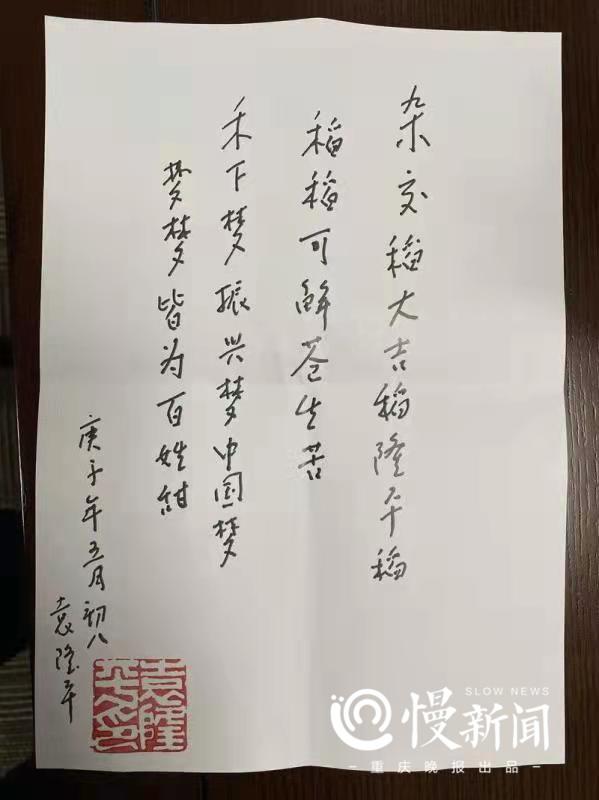 杂交稻大吉稻隆平稻
稻稻可解苍生苦
禾下梦振兴梦中国梦
梦梦皆为百姓甜
庚子年五月初八
袁隆平
袁隆平印
SLOW NEWS
慢新闻
-重庆晚报出品-